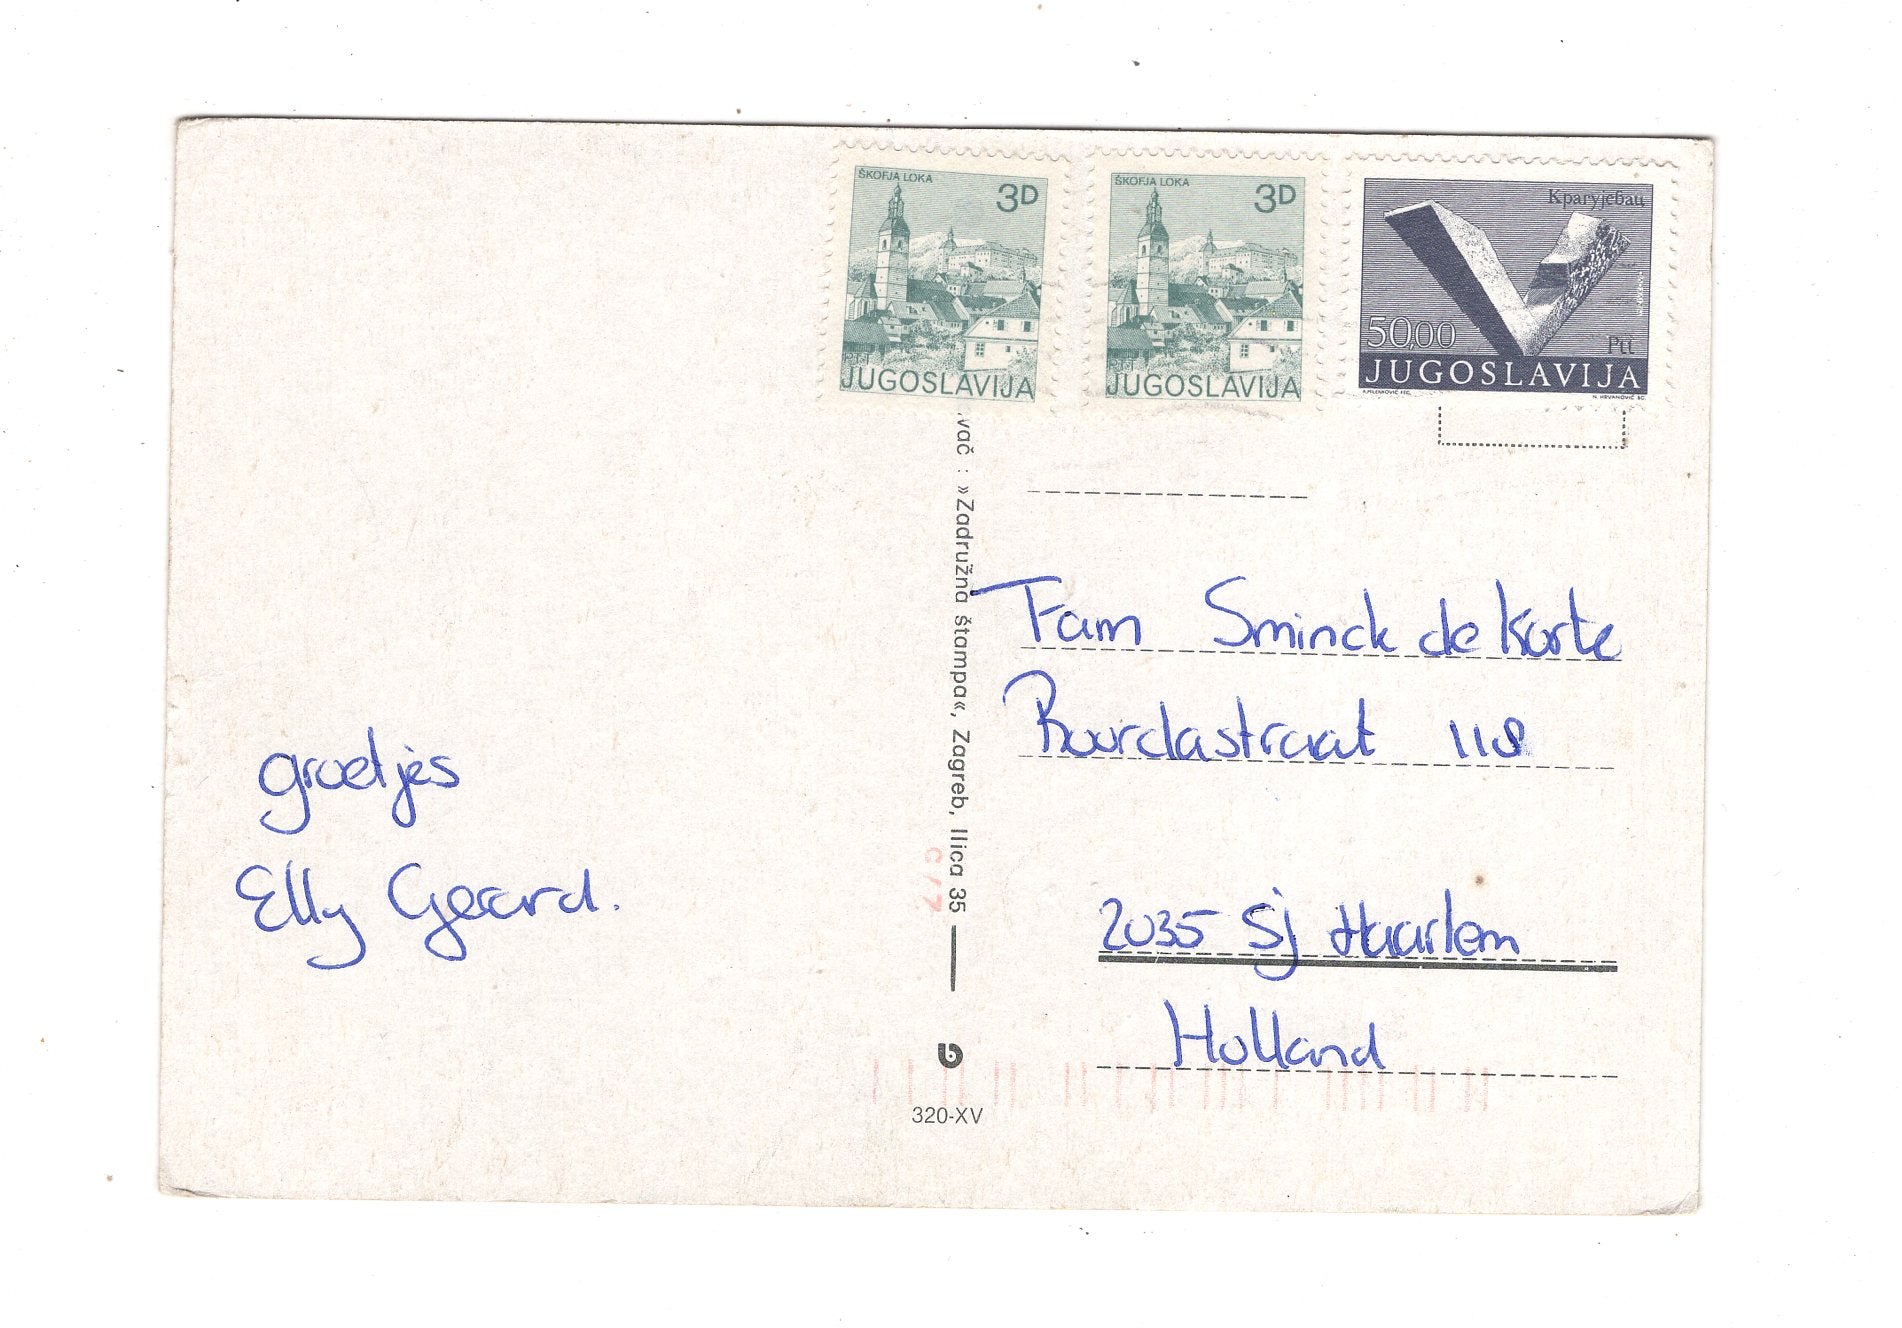 ŠKOFJA LOKA
3D
PTT
JUGOSLAVIJA
ŠKOFJA LOKA
3D
PTT
JUGOSLAVIJA
Крагујевац
50,00
Ptt
JUGOSLAVIJA
A.MILENKOVIĆ FEC.
N. HRVANOVIĆ SC.
vač : »Zadružna štampa«, Zagreb, Ilica 35
320-XV
groetjes
Elly Geard.
Fam Sminck de Korte
Buurdastraat 118
2035 SJ Haarlem
Holland